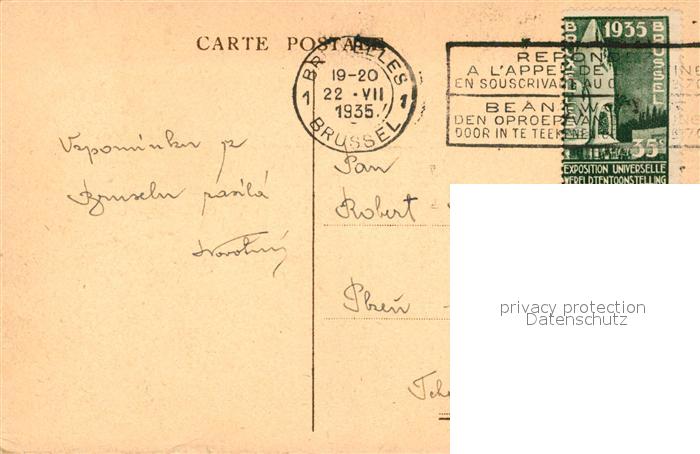 CARTE POSTALE
BRUXELLES
1 19-20 1
22 · VII
1935
BRUSSEL
REPON
A L'APPEL DE L
EN SOUSCRIVA AU
BEANTW
DEN OPROEP VAN
DOOR IN TE TEEKENE
1935
BRUSSEL
35c
EXPOSITION UNIVERSELLE
WERELDTENTOONSTELLING
Vzpomínku z
Bruselu zasílá
Novotný
Pan
Robert
Plzeň
privacy protection
Datenschutz